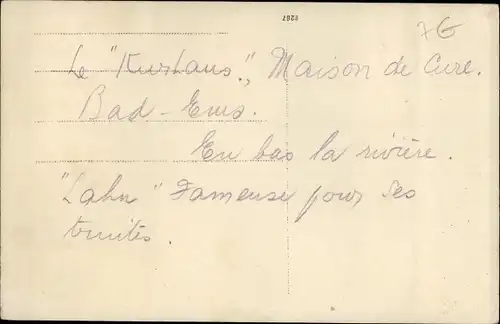 8267
7G
Le "Kurhaus", Maison de Cure.
Bad-Ems.
En bas la rivière.
"Lahn" Fameuse pour ses
truites.